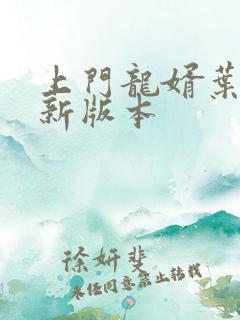 上門龍婿葉
新版本
徐妍斐
未經同意禁止轉載